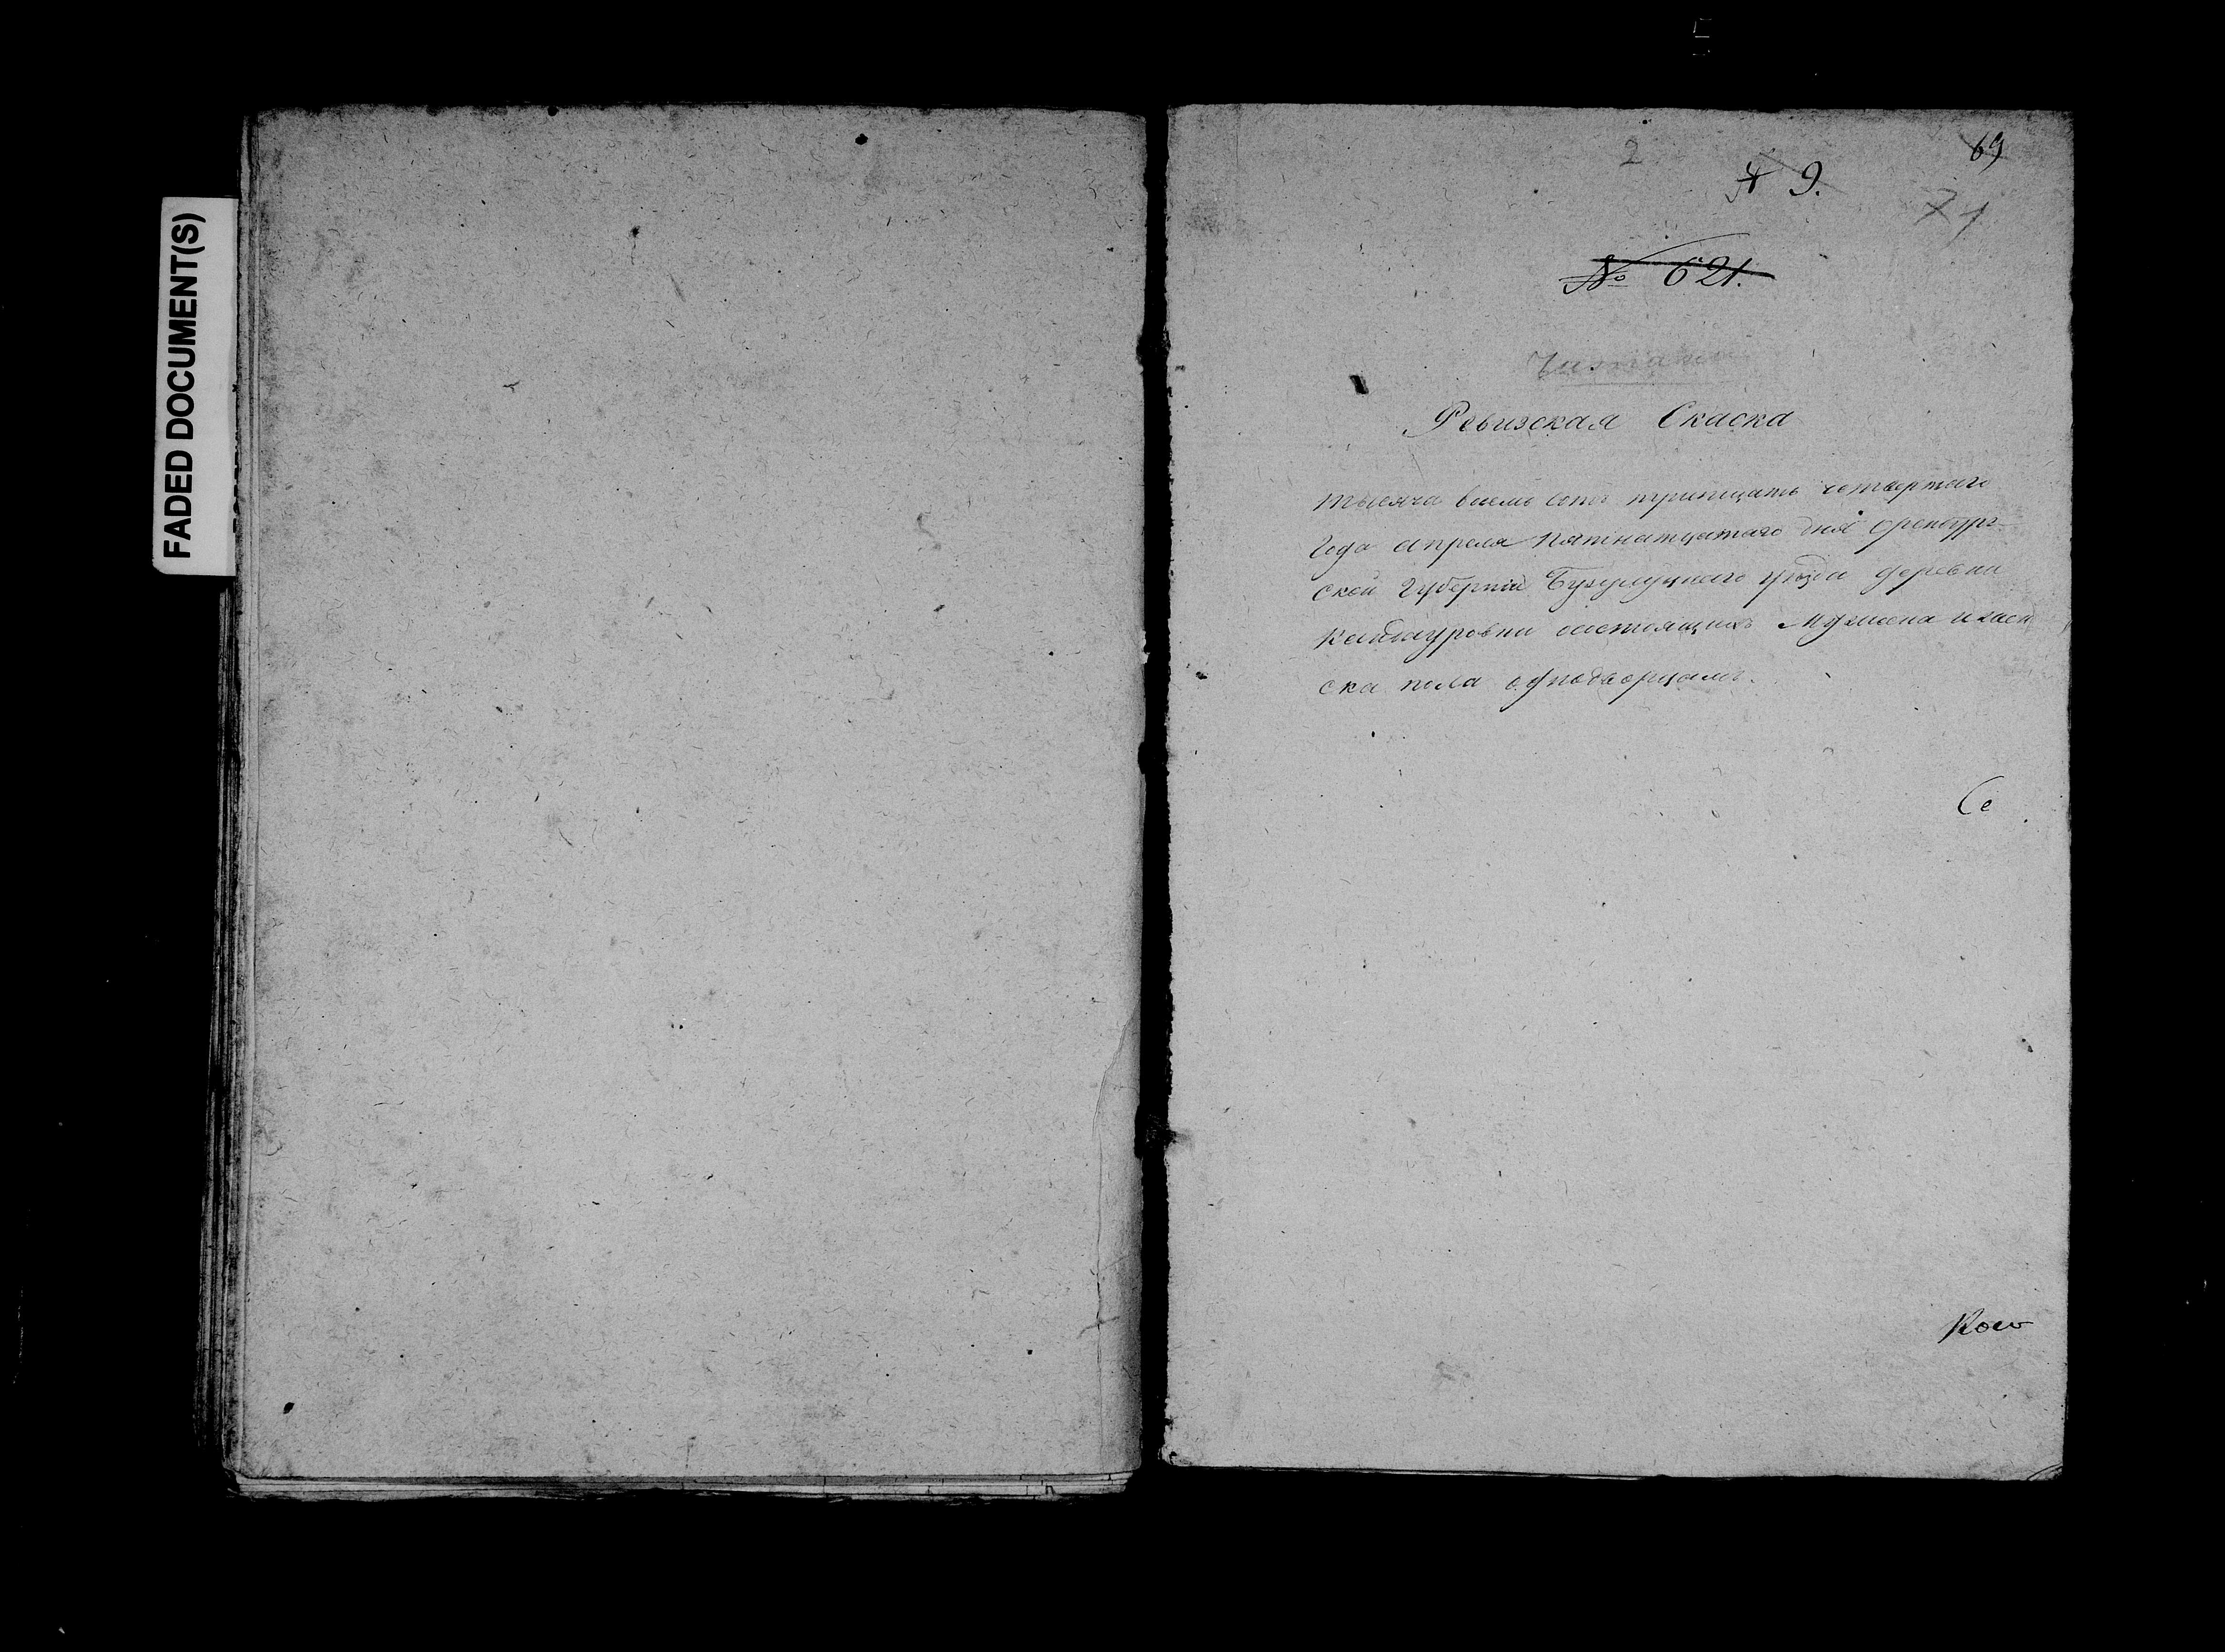 FADED DOCUMENT(S)
2
69
№ 9.
71
№ 621.
Ревизская Скаска
тысяча восемь сотъ тритцать четвертаго
Года апреля пятнатцатаго дня Оренбург
ской Губерніи Бузулуцкаго уезда деревни
состоящихъ мужеска и женс
ка пола однодворцахъ.
Се